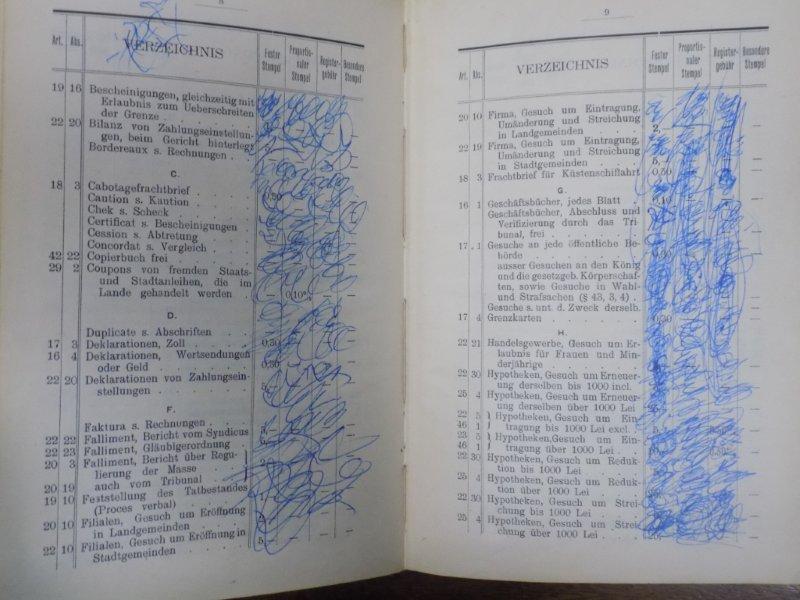 8
Art. Abs. VERZEICHNIS Fester Stempel Proportionaler Stempel Registergebühr Besondere Stempel
19 16 Bescheinigungen, gleichzeitig mit
Erlaubnis zum Ueberschreiten
der Grenze
22 20 Bilanz von Zahlungseinstellun-
gen, beim Gericht hinterlegt
Bordereaux s. Rechnungen
C.
18 3 Cabotagefrachtbrief 0,50
Caution s. Kaution
Chek s. Scheck
Certificat s. Bescheinigungen
Cession s. Abtretung
Concordat s. Vergleich
42 22 Copierbuch frei
29 2 Coupons von fremden Staats-
und Stadtanleihen, die im
Lande gehandelt werden 0,10%
D.
Duplicate s. Abschriften
17 3 Deklarationen, Zoll 0,30
16 4 Deklarationen, Wertsendungen
oder Geld 0,30
22 20 Deklarationen von Zahlungsein-
stellungen 5,
F.
Faktura s. Rechnungen
22 22 Falliment, Bericht vom Syndicus 5,
22 23 Falliment, Gläubigerordnung
20 3 Falliment, Bericht über Regu-
lierung der Masse
20 19 auch vom Tribunal
19 10 Feststellung des Tatbestandes
(Proces verbal)
20 10 Filialen, Gesuch um Eröffnung
in Landgemeinden
22 10 Filialen, Gesuch um Eröffnung in
Stadtgemeinden 5,
9
Art. Abs. VERZEICHNIS Fester Stempel Proportionaler Stempel Registergebühr Besondere Stempel
20 10 Firma, Gesuch um Eintragung,
Umänderung und Streichung
in Landgemeinden 2,
22 19 Firma, Gesuch um Eintragung,
Umänderung und Streichung
in Stadtgemeinden 5,
18 3 Frachtbrief für Küstenschiffahrt 0,50
G.
16 1 Geschäftsbücher, jedes Blatt 0,10
Geschäftsbücher, Abschluss und
Verifizierung durch das Tri-
bunal, frei
17 1 Gesuche an jede öffentliche Be-
hörde 0,30
ausser Gesuchen an den König
und die gesetzgeb. Körperschaf-
ten, sowie Gesuche in Wahl-
und Strafsachen (§ 43, 3, 4)
Gesuche s. unt. d. Zweck derselb.
17 4 Grenzkarten 0,30
H.
22 21 Handelsgewerbe, Gesuch um Er-
laubnis für Frauen und Min-
derjährige
22 30 Hypotheken, Gesuch um Erneuer-
ung derselben bis 1000 incl.
25 4 Hypotheken, Gesuch um Erneuer-
ung derselben über 1000 Lei
22 5 Hypotheken, Gesuch um Ein-
46 1 tragung bis 1000 Lei excl.
23 5 Hypotheken, Gesuch um Ein-
46 1 tragung über 1000 Lei
22 30 Hypotheken, Gesuch um Reduk-
tion bis 1000 Lei
25 4 Hypotheken, Gesuch um Reduk-
tion über 1000 Lei
22 30 Hypotheken, Gesuch um Strei-
chung bis 1000 Lei
25 4 Hypotheken, Gesuch um Strei-
chung über 1000 Lei